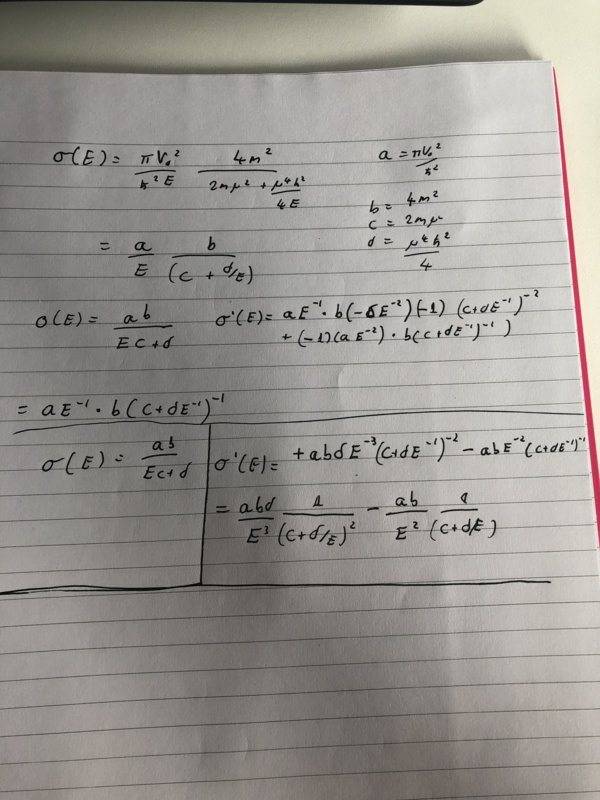 σ(E) = πV₀²/ħ²E 4m²/(2mμ² + μ⁴ħ²/4E) a = πV₀²/ħ²
b = 4m²
c = 2mμ²
= a/E b/(c + d/E) d = μ⁴ħ²/4
σ(E) = ab/(Ec+d) σ'(E) = aE⁻¹ · b(-dE⁻²)(-1) (c+dE⁻¹)⁻²
+ (-1)(aE⁻²) · b(c+dE⁻¹)⁻¹)
= aE⁻¹ · b(c+dE⁻¹)⁻¹
σ(E) = ab/(Ec+d) σ'(E) = +abdE⁻³(c+dE⁻¹)⁻² - abE⁻²(c+dE⁻¹)⁻¹
= abd/E³ 1/(c+d/E)² - ab/E² 1/(c+d/E)